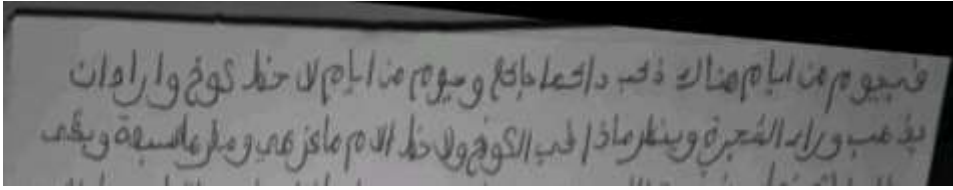 في يوم من ايام هناك ذئب دائما جائع ويوم من ايام لا حظ كوخ وارادان
يذهب وراء الشجرة وينظر ماذا في الكوخ ولا حظ الام ماعز هي و السبعة وبقى